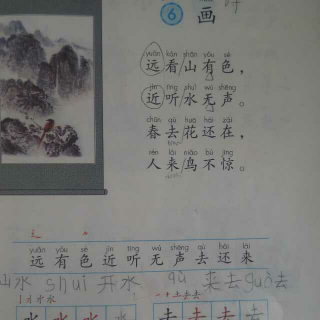 6 画
yuǎn kàn shān yǒu sè
远看山有色，
jìn tīng shuǐ wú shēng
近听水无声。
chūn qù huā hái zài
春去花还在，
rén lái niǎo bù jīng
人来鸟不惊。
yuǎn yǒu sè jìn tīng wú shēng qù hái lái
远有色近听无声去还来
山水 shuǐ 开水 qù 来去 guò去
水 去去